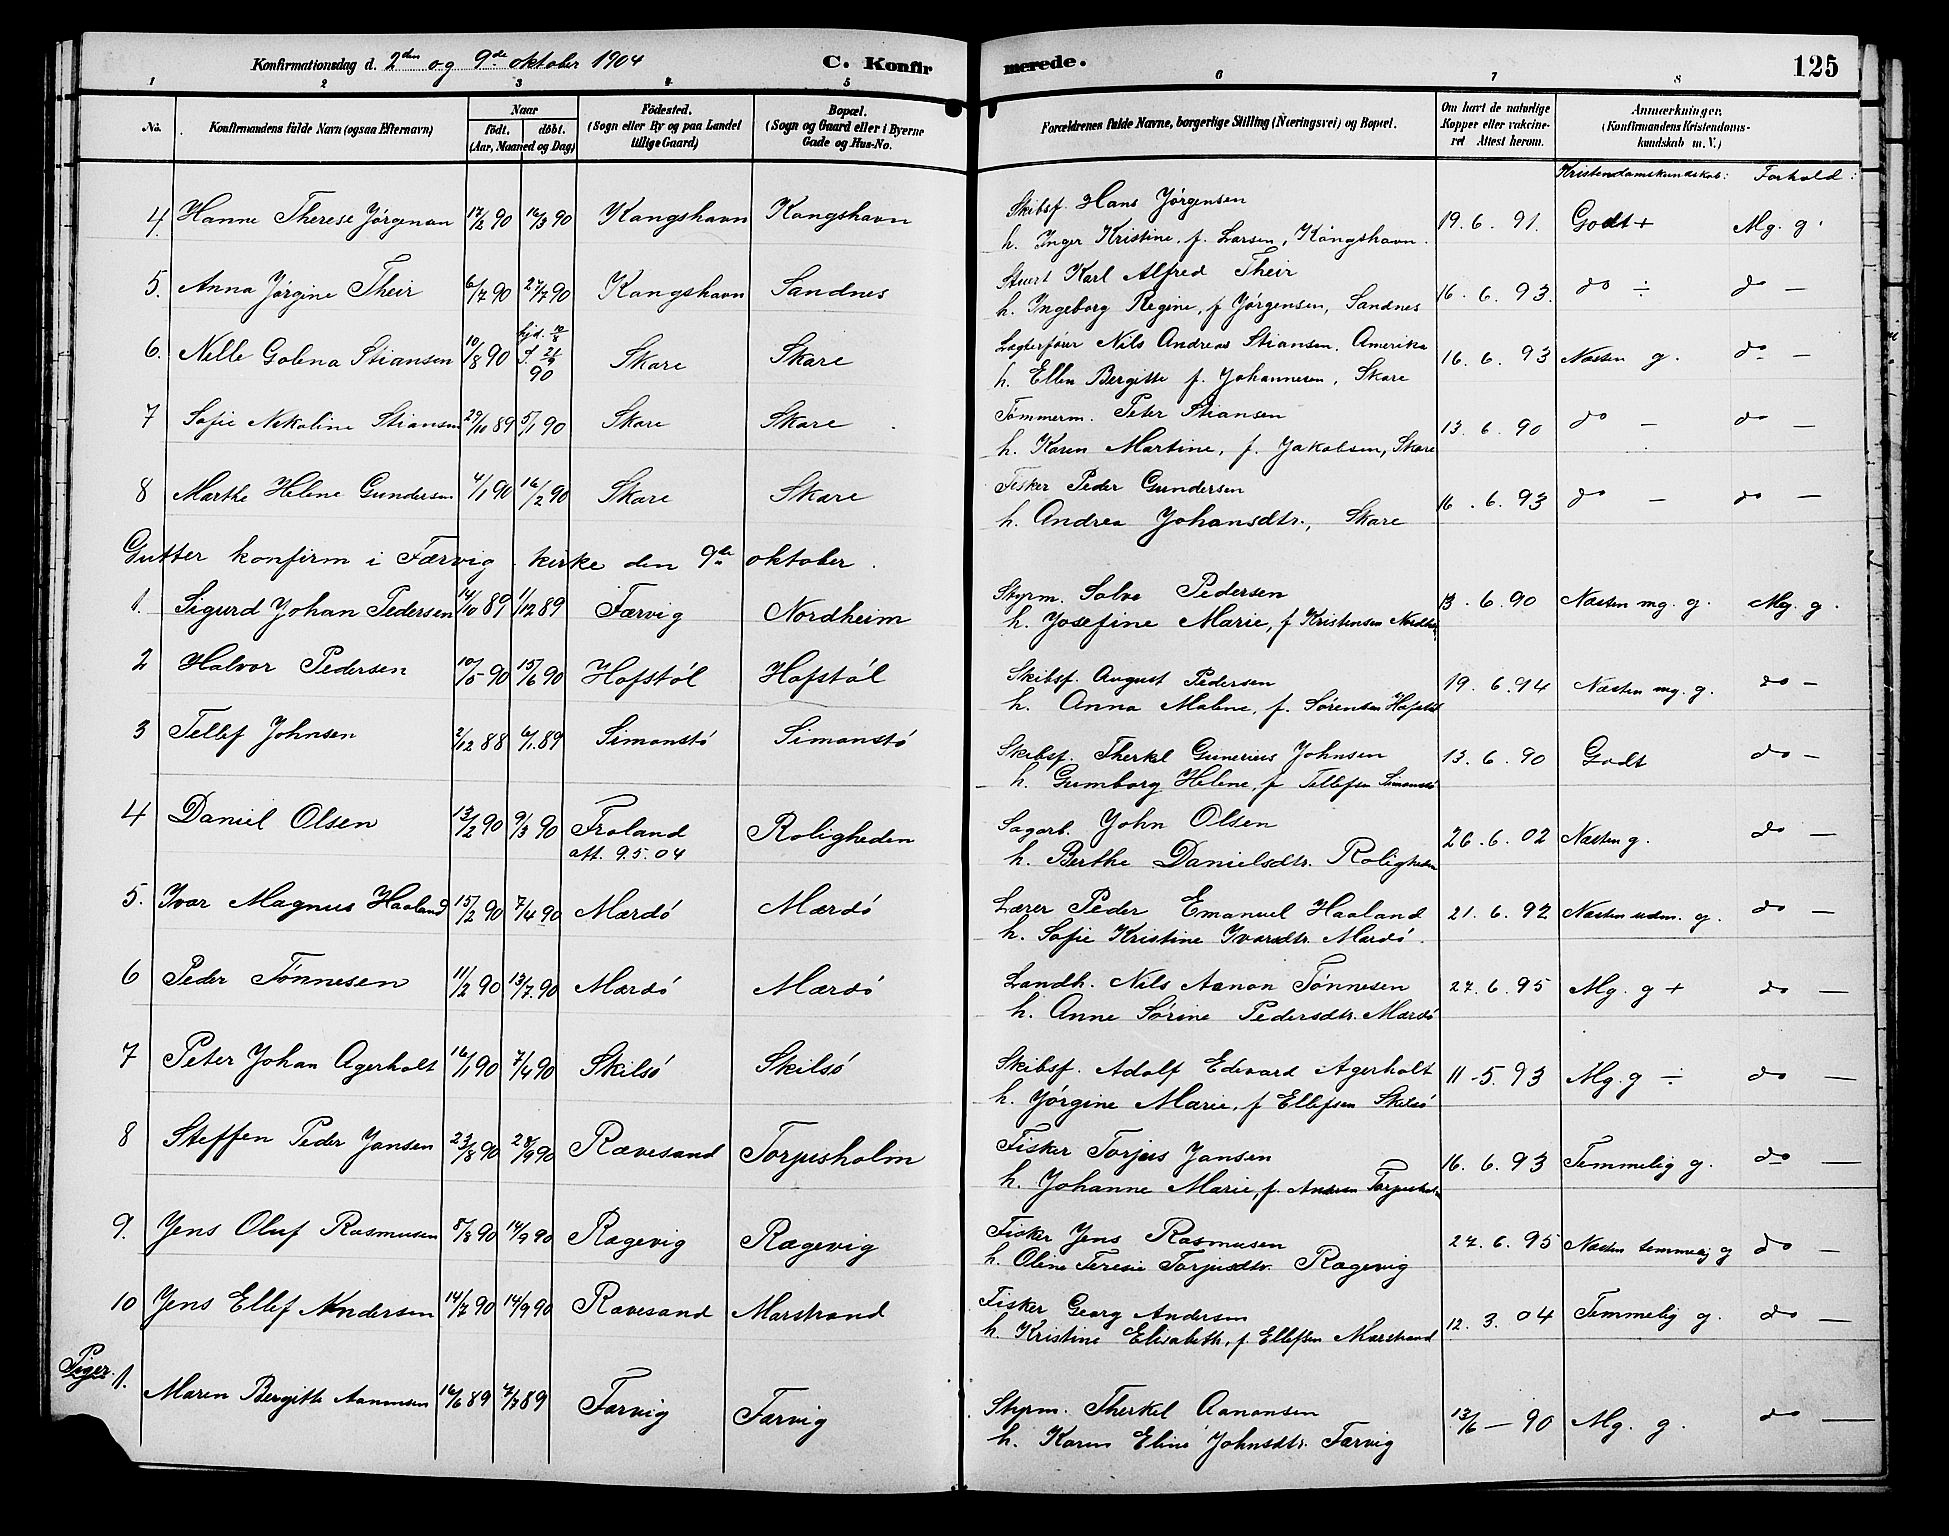 Konfirmationsdag d. 2den og 9de oktober 1904
C. Konfirmerede.
125
1 2 3 4 5 6 7 8
No.
Konfirmandens fulde Navn (ogsaa Efternavn)
Naar
født, døbt.
(Aar, Maaned og Dag)
Fødested.
(Sogn eller By og paa Landet
tillige Gaard)
Bopæl.
(Sogn og Gaard eller i Byerne
Gade og Hus-No.
Forældrenes fulde Navne, borgerlige Stilling (Næringsvei) og Bopæl.
Om havt de naturlige
Kopper eller vakcine-
ret Attest herom.
Anmærkninger.
(Konfirmandens Kristendoms-
kundskab m. V.)
Kristendomskundskab: Forhold:
4. Hanne Therese Jørgensen 17/2 90 16/3 90 Kongshavn Kongshavn Skibsf. Hans Jørgensen 19. 6. 91. Godt + Mg. g.
h. Inger Kristine, f. Larsen, Kongshavn.
5. Anna Jørgine Their 6/7 90 27/7 90 Kongshavn Sandnes Stuert Karl Alfred Their 16. 6. 93. do ÷ do —
h. Ingeborg Regine, f. Jørgensen, Sandnes
6. Nelle Golena Stiansen 10/8 90 hjd. 90 Skare Skare Nils Andreas Stiansen. Amerika 16. 6. 93 Næsten g. do —
h. Ellen Bergitte f. Johannesen, Skare
7 Sofie Nekoline Stiansen 29/10 89 5/1 90 Skare Skare Tømmerm. Peter Stiansen 13. 6. 90 do — do —
h. Karen Martine, f. Jakobsen, Skare
8 Marthe Helene Gundersen 4/1 90 16/2 90 Skare Skare Fisker Peder Gundersen 16. 6. 93 do — do —
h. Andrea Johansdtr., Skare
Gutter konfirm i Færvig kirke den 9de oktober.
1. Sigurd Johan Pedersen 14/10 89 1/12 89 Færvig Nordheim Styrm. Salve Pedersen 13. 6. 90 Næsten mg. g. Mg. g.
h. Josefine Marie, f Kristensen
2 Halvor Pedersen 10/5 90 15/6 90 Hofstøl Hofstøl Skibsf. August Pedersen 19. 6. 94 Næsten mg. g. do —
h. Anna Malene, f. Sørensen Hofstøl
3 Tellef Johnsen 2/12 88 6/1 89 Simonstø Simonstø Skibsf. Therkel Gunerius Johnsen 13. 6. 90 Godt do —
h. Gumborg Helene, f Tellefsen Simonstø
4 Daniel Olsen 13/2 90 9/3 90 Froland Roligheden Sagarb. John Olsen 26. 6. 02 Næsten g. do —
att. 9.5.04 h. Berthe Danielsdtr. Roligheden
5. Ivar Magnus Haaland 15/2 90 7/4 90 Mærdø Mærdø Lærer Peder Emanuel Haaland 21. 6. 92 Næsten udm. g. do —
h. Sofie Kristine Ivarsdtr. Mærdø.
6 Peder Tønnesen 11/2 90 13/7. 90 Mærdø Mærdø Landh. Nils Aanon Tønnesen 27. 6. 95 Mg. g + do —
h. Anne Sørine Pedersdtr. Mærdø
7 Peter Johan Agerholt 16/1 90 7/4 90 Skilsø Skilsø Skibsf. Adolf Edevard Agerholt 11-5. 93 Mg. g ÷ do —
h. Jørgine Marie, f Ellefsen Skilsø
8 Steffen Peder Jansen 23/8 90 28/9 90 Rævesand Torjusholm Fisker Torjus Jansen 16. 6. 93 Temmelig g. do —
h. Johanne Marie, f. Torjusholm
9. Jens Oluf Rasmusen 5/8 90 14/9 90 Rægevig Rægevig Fisker Jens Rasmusen 27. 6. 95 Næsten temmelig g do —
h. Oline Teresie Torjusdtr. Rægevig
10 Jens Ellef Andersen 14/7 90 14/9 90 Rævesand Marstrand Fisker Georg Andersen 12. 3. 04 Temmelig g. do —
h. Kristine Elisabeth, f. Ellefsen Marstrand
Piger. 1. Maren Bergitte Aanonsen 16/6 89 7/7 89 Færvig Færvig Styrm. Therkel Aanonsen 13/6 — 90 Mg. g. do —
h. Karen Eline Johnsdtr. Færvig